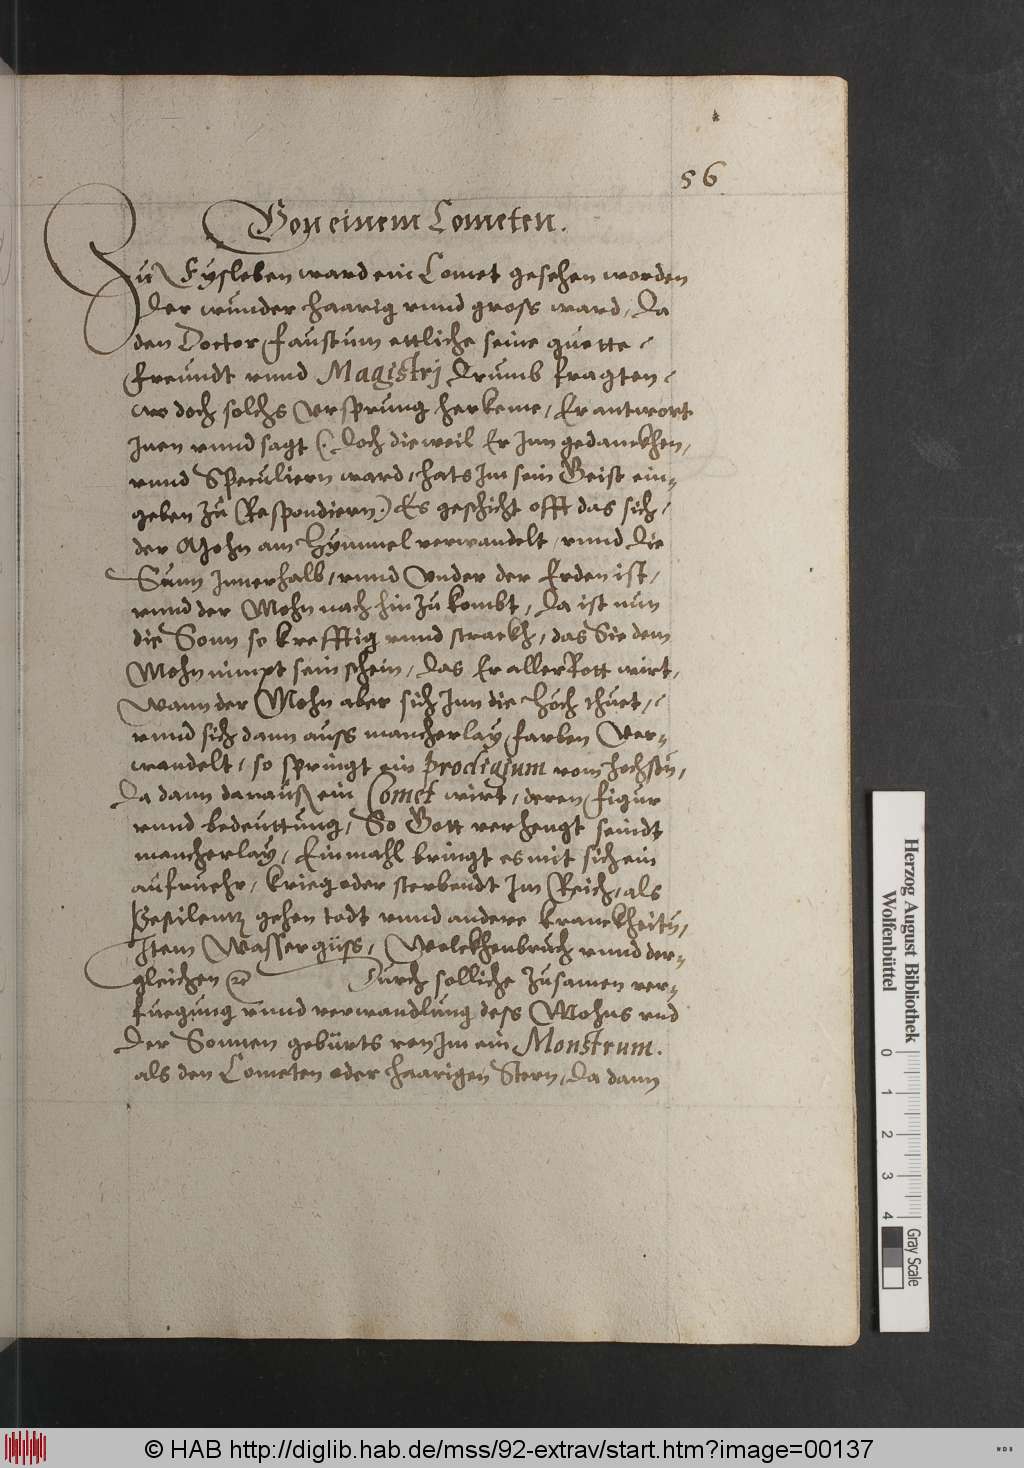 56
Von einem Cometen.
Zu Eysleben ward ein Comet gesehen worden
der wunder haarig vnnd gross ward, Da
den Doctor Faustum ettliche seine guette
freundt vnnd Magistrj drumb fragten
wo doch solchs vrsprung herkeme, Er antwort
Inen vnnd sagt (: doch dieweil Er Inn gedanckhen,
vnnd Speculiern ward, hats Im sein Geist ein=
geben zů Respondiern:) Es geschicht offt das sich,
der Mohn am Hymmel verwandelt, vnnd die
Sunn Innerhalb, vnnd vnder der Erden ist,
vnnd der Mohn nach hin zů kombt, da ist nun
die Sonn so krefftig vnnd starckh, das Sie dem
Mohn nimpt sein schein, das Er aller Rott wirt,
Wann der Mohn aber sich Inn die höch thuet,
vnnd sich dann auss mancherlay farben Ver=
wandelt, so springt ein prodigium vom hochstn,
da dann darauß ein Comet wirt, deren figur
vnnd bedeuttung, So Gott verhengt seindt
mancherlay, Einmahl bringt es mit sich ein
aufruehr, krieg oder sterbendt Im Reich, als
Pestilentz gehen todt vnnd andere kranckheitn,
Item Wassergüss, Wolckhenbruch vnnd der=
gleichen ꝛc Durch solliche zusamen ver=
fuegung vnnd verwandlung dess Mohns vnd
der Sonnen gebürts von Im ein Monstrum.
als den Cometen oder haarigen Stern, da dann
Herzog August Bibliothek
Wolfenbüttel
0 1 2 3 4
Gray Scale
© HAB http://diglib.hab.de/mss/92-extrav/start.htm?image=00137